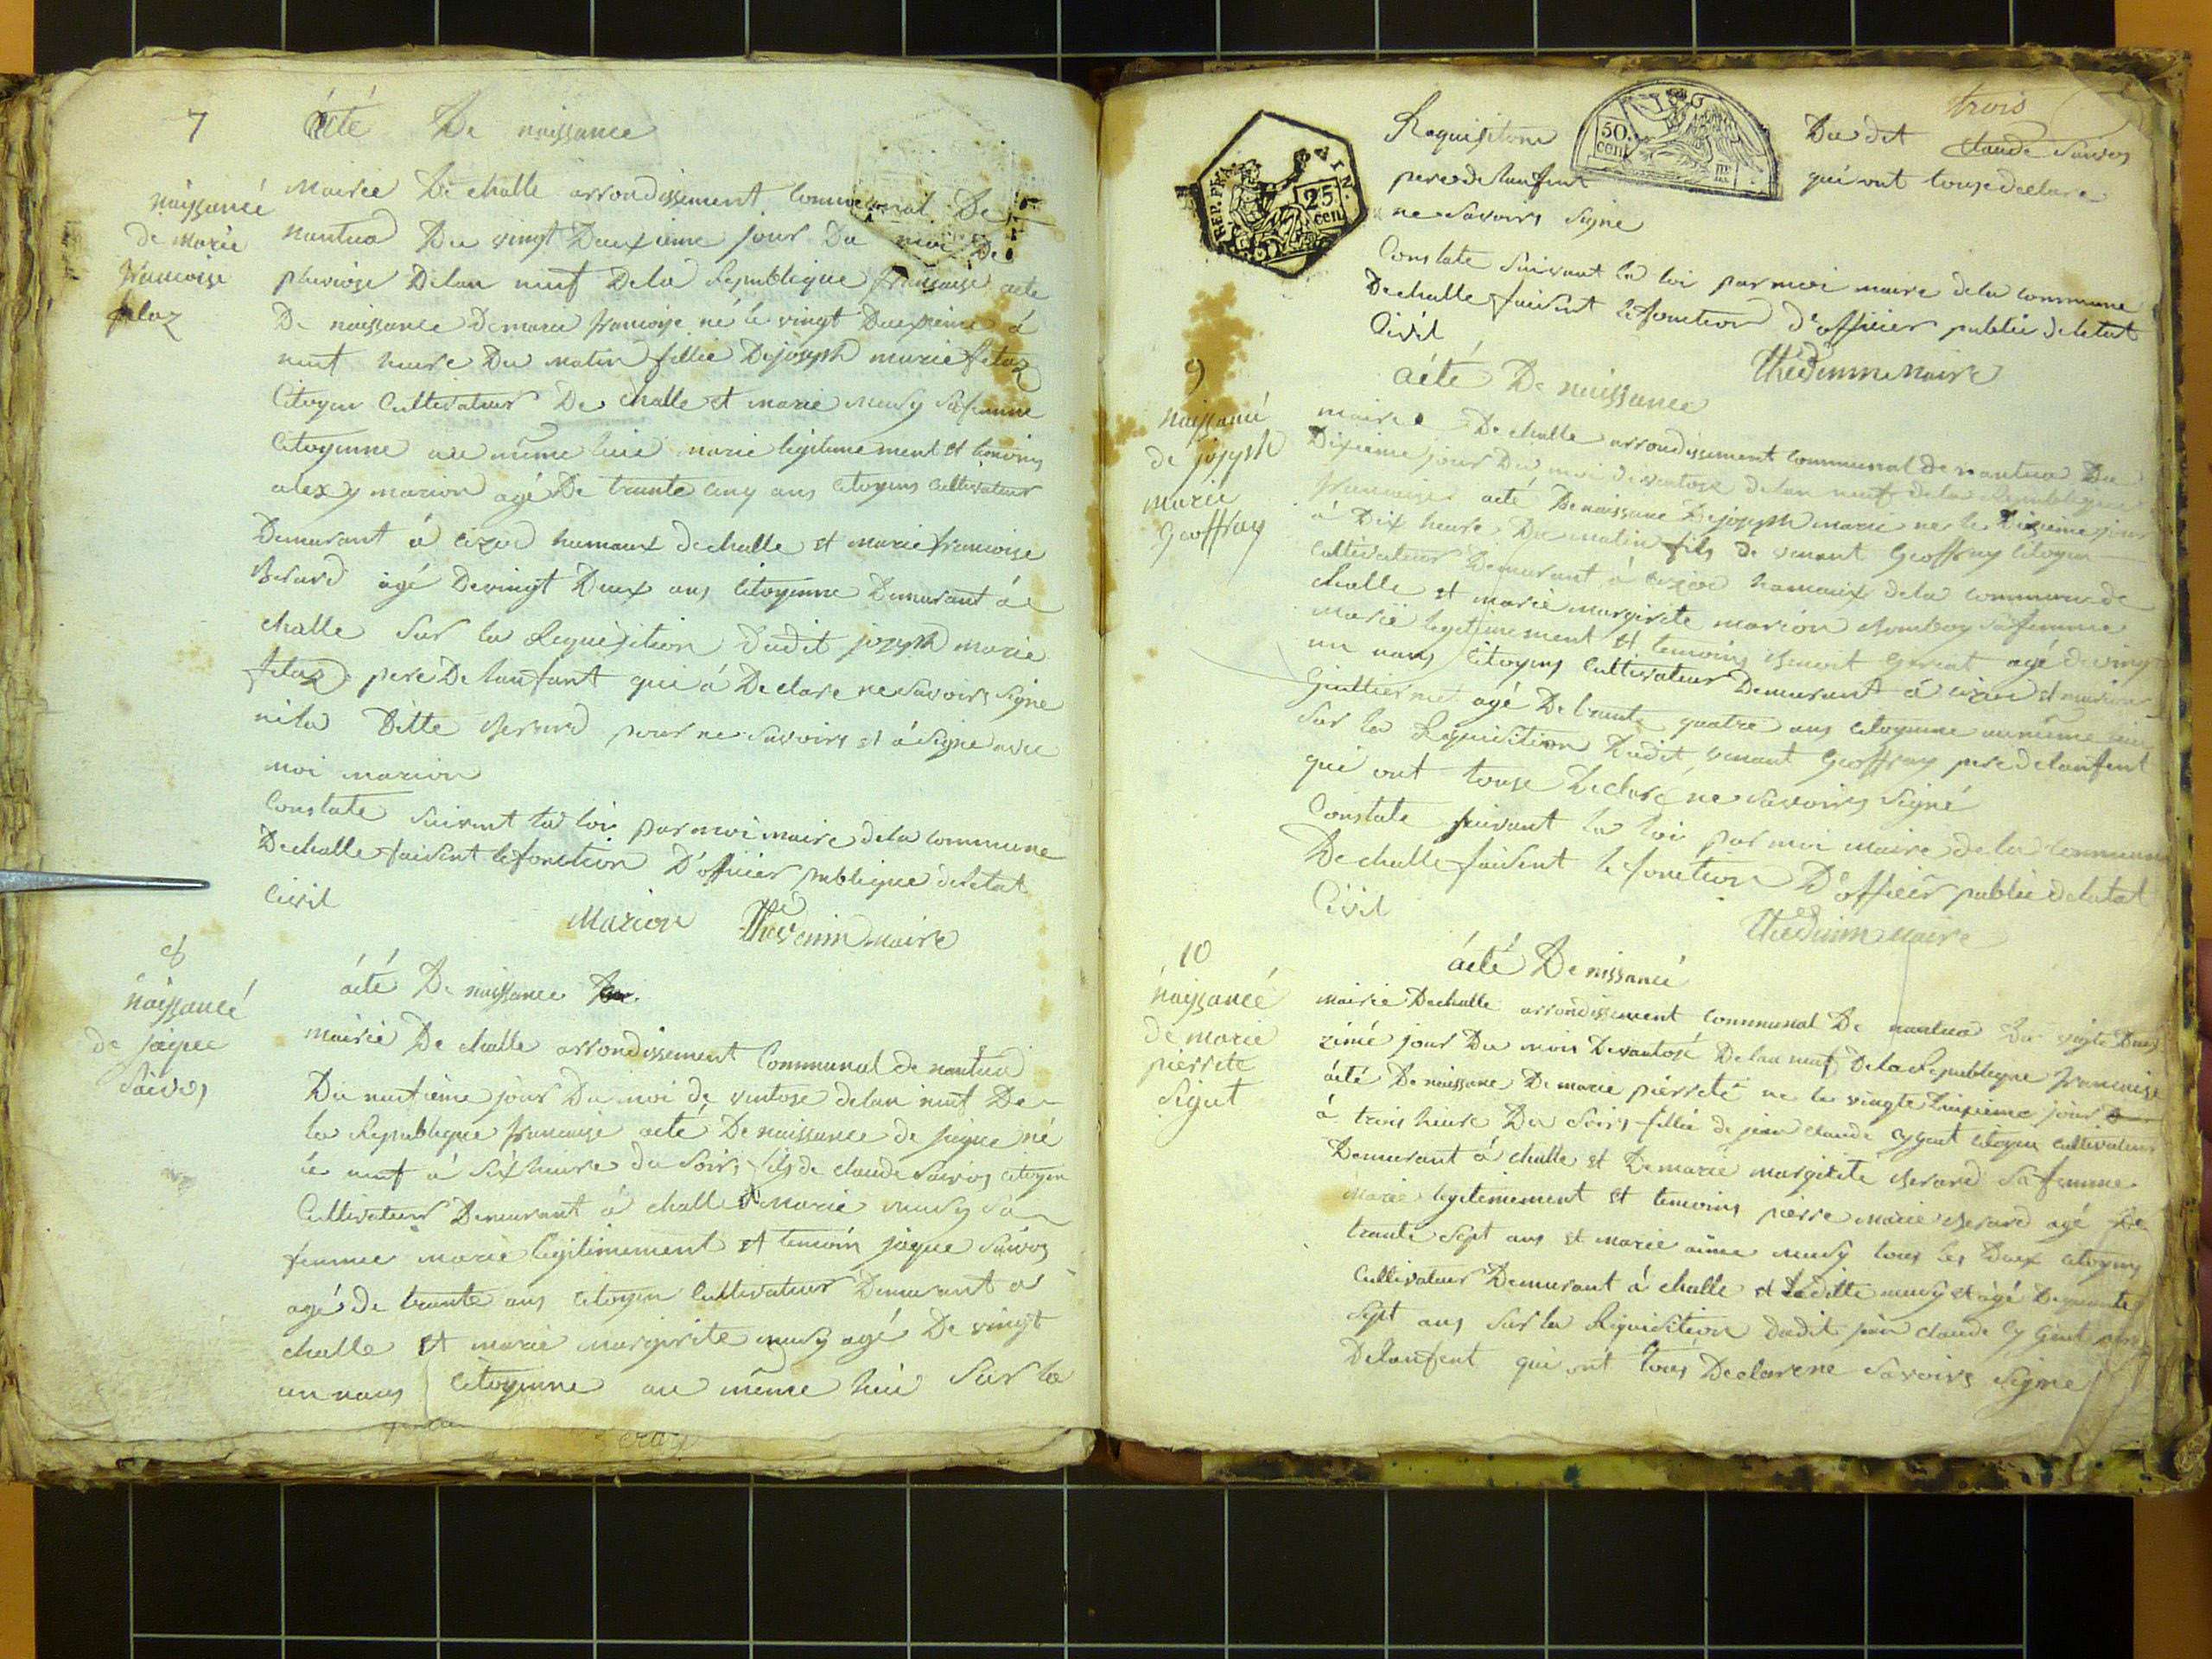 7
acté De naissance
naissancé
de marie
francoise
felaz
Mairie De challe arrondissement Communal De
nantua Du vingt Deuxieme jour Du moi De
pluviose Delan neuf Dela Republique francaise acte
De naissance De marie francoise né le vingt Deuxieme á
neuf heure Du matin fillie De joseph marie felaz
Citoyen Cultivateur De challe et marie musy sa femme
Citoyenne au même lieu marie legitimement et temoins
alexy marion agé De trante cinq ans Citoyens Cultivateur
Demurant á cizod hamaux de challe et marie francoise
Berard agé De vingt Deux ans Citoyenne Demurant á
challe Sur la Requisition dudit joseph marie
felaz pere De lanfant qui á Declare ne Savoirs Signe
ni la Ditte Berard pour ne Savoirs et á Signe avec
moi marion
Constate Suivant la loi par moi maire dela Commune
De challe faisent le fonction D'officier publique deletat
Civil
Marion Thévenin maire
8
Naissancé
de jaque
Saivos
ácté De naissance
Mairie De challe arrondissement Communal de nantua
Du neufième jour Du moi de ventose delan neuf De
la Republique francaise acté De naissance de jaque né
le neuf á Six heure du Soirs fils de claude Saivos Citoyen
Cultivateur Demurant á challe et marie musy Sa
femme marié legitimement et temoin jaque Saivos
agé de trante ans Citoyen Cultivateur Demurant á
challe et marie margirite musy agé De vingt
un nans Citoyenne au même lieu Sur la
trois
REP. FRA.
25 cen
AIN
50 cent
Requisitione Du dit claude Saivos
pere de lanfent qui ont touse declare
ne Savoirs Signe
Constate Suivant la loi par moi maire dela Commune
De challe faisent le fonction d'officier public de letat
Civil
Thévenin maire
9
Naissancé
de joseph
marie
Geoffray
ácté De naissance
mairie De challe arrondissement Communal de nantua Du
Dixieme jour Du moi de ventose delan neuf dela Republique
francaise acté De naissance De joseph marie né le Dixieme jour
á Dix heure Du matin fils de venant Geoffray Citoyen
Cultivateur Demurant á cizod hamaux dela Commune de
challe et marie margirete marion chomboy Sa femme
Marie legitimement et temoins Benoit Goriat agé de vingt
un nans Citoyens Cultivateur Demurant á cizod et
Guilliermet agé De trante quatre ans Citoyenne au même lieu
Sur la Requisition Dudit venant Geoffray pere delanfent
qui ont touse Declaré ne Savoirs Signé
Constate Suivant la loi par moi maire de la Commune
De challe faisent le fonction D'officier public deletat
Civil
Thévenin maire
10
Naissancé
de marie
pierrete
Sigut
ácté De nissancé
mairie De challe arrondissement Communal De nantua Du vigte Deux
zimé jour Du mois De vantosé Delan neuf De la Republique francaise
ácté De naissane De marie pierreté ne le vingte Duxieme jour
á trois heure Du Soirs fillié de jean claude Cygut Citoyen Cultivateur
Demurant á challe et De marie margirité Berard Sa femme
Marie legitemement et temoins pierre Marie Berard agé De
trante Sept ans et Marie aimee musy tous les Deux Citoyens
Cultivateur Demurant á challe et La ditte musy et ágé De
Sept ans Sur la Requisition Dudit jean claude Cygut pere
De lanfent qui ont tous Declare ne Savoirs Signe